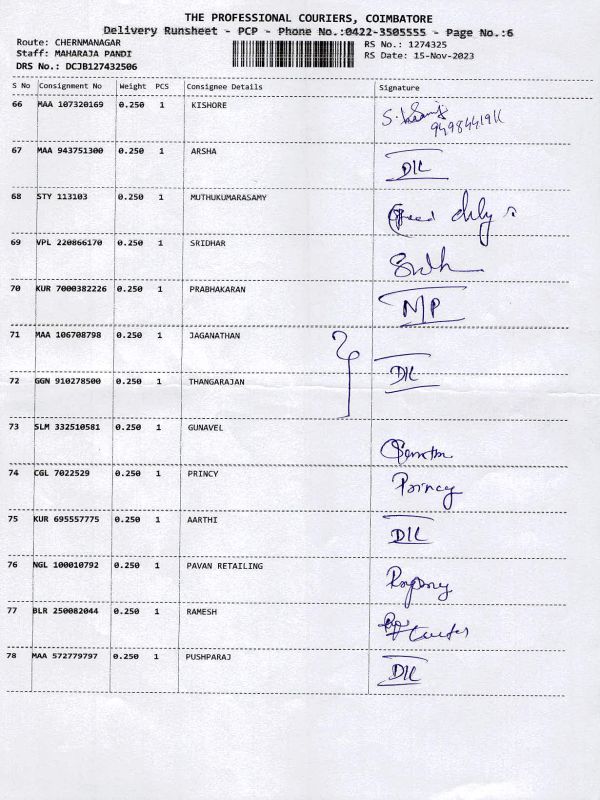 THE PROFESSIONAL COURIERS, COIMBATORE
Delivery Runsheet - PCP - Phone No.:0422-3505555 - Page No.:6
Route: CHERNMANAGAR RS No.: 1274325
Staff: MAHARAJA PANDI RS Date: 15-Nov-2023
DRS No.: DCJB127432506
S No Consignment No Weight PCS Consignee Details Signature
66 MAA 107320169 0.250 1 KISHORE
67 MAA 943751300 0.250 1 ARSHA DIL
68 STY 113103 0.250 1 MUTHUKUMARASAMY
69 VPL 220866170 0.250 1 SRIDHAR
70 KUR 7000382226 0.250 1 PRABHAKARAN N/P
71 MAA 106708798 0.250 1 JAGANATHAN
72 GGN 910278500 0.250 1 THANGARAJAN DIL
73 SLM 332510581 0.250 1 GUNAVEL
74 CGL 7022529 0.250 1 PRINCY Princy
75 KUR 695557775 0.250 1 AARTHI DIL
76 NGL 100010792 0.250 1 PAVAN RETAILING
77 BLR 250082044 0.250 1 RAMESH
78 MAA 572779797 0.250 1 PUSHPARAJ DIL